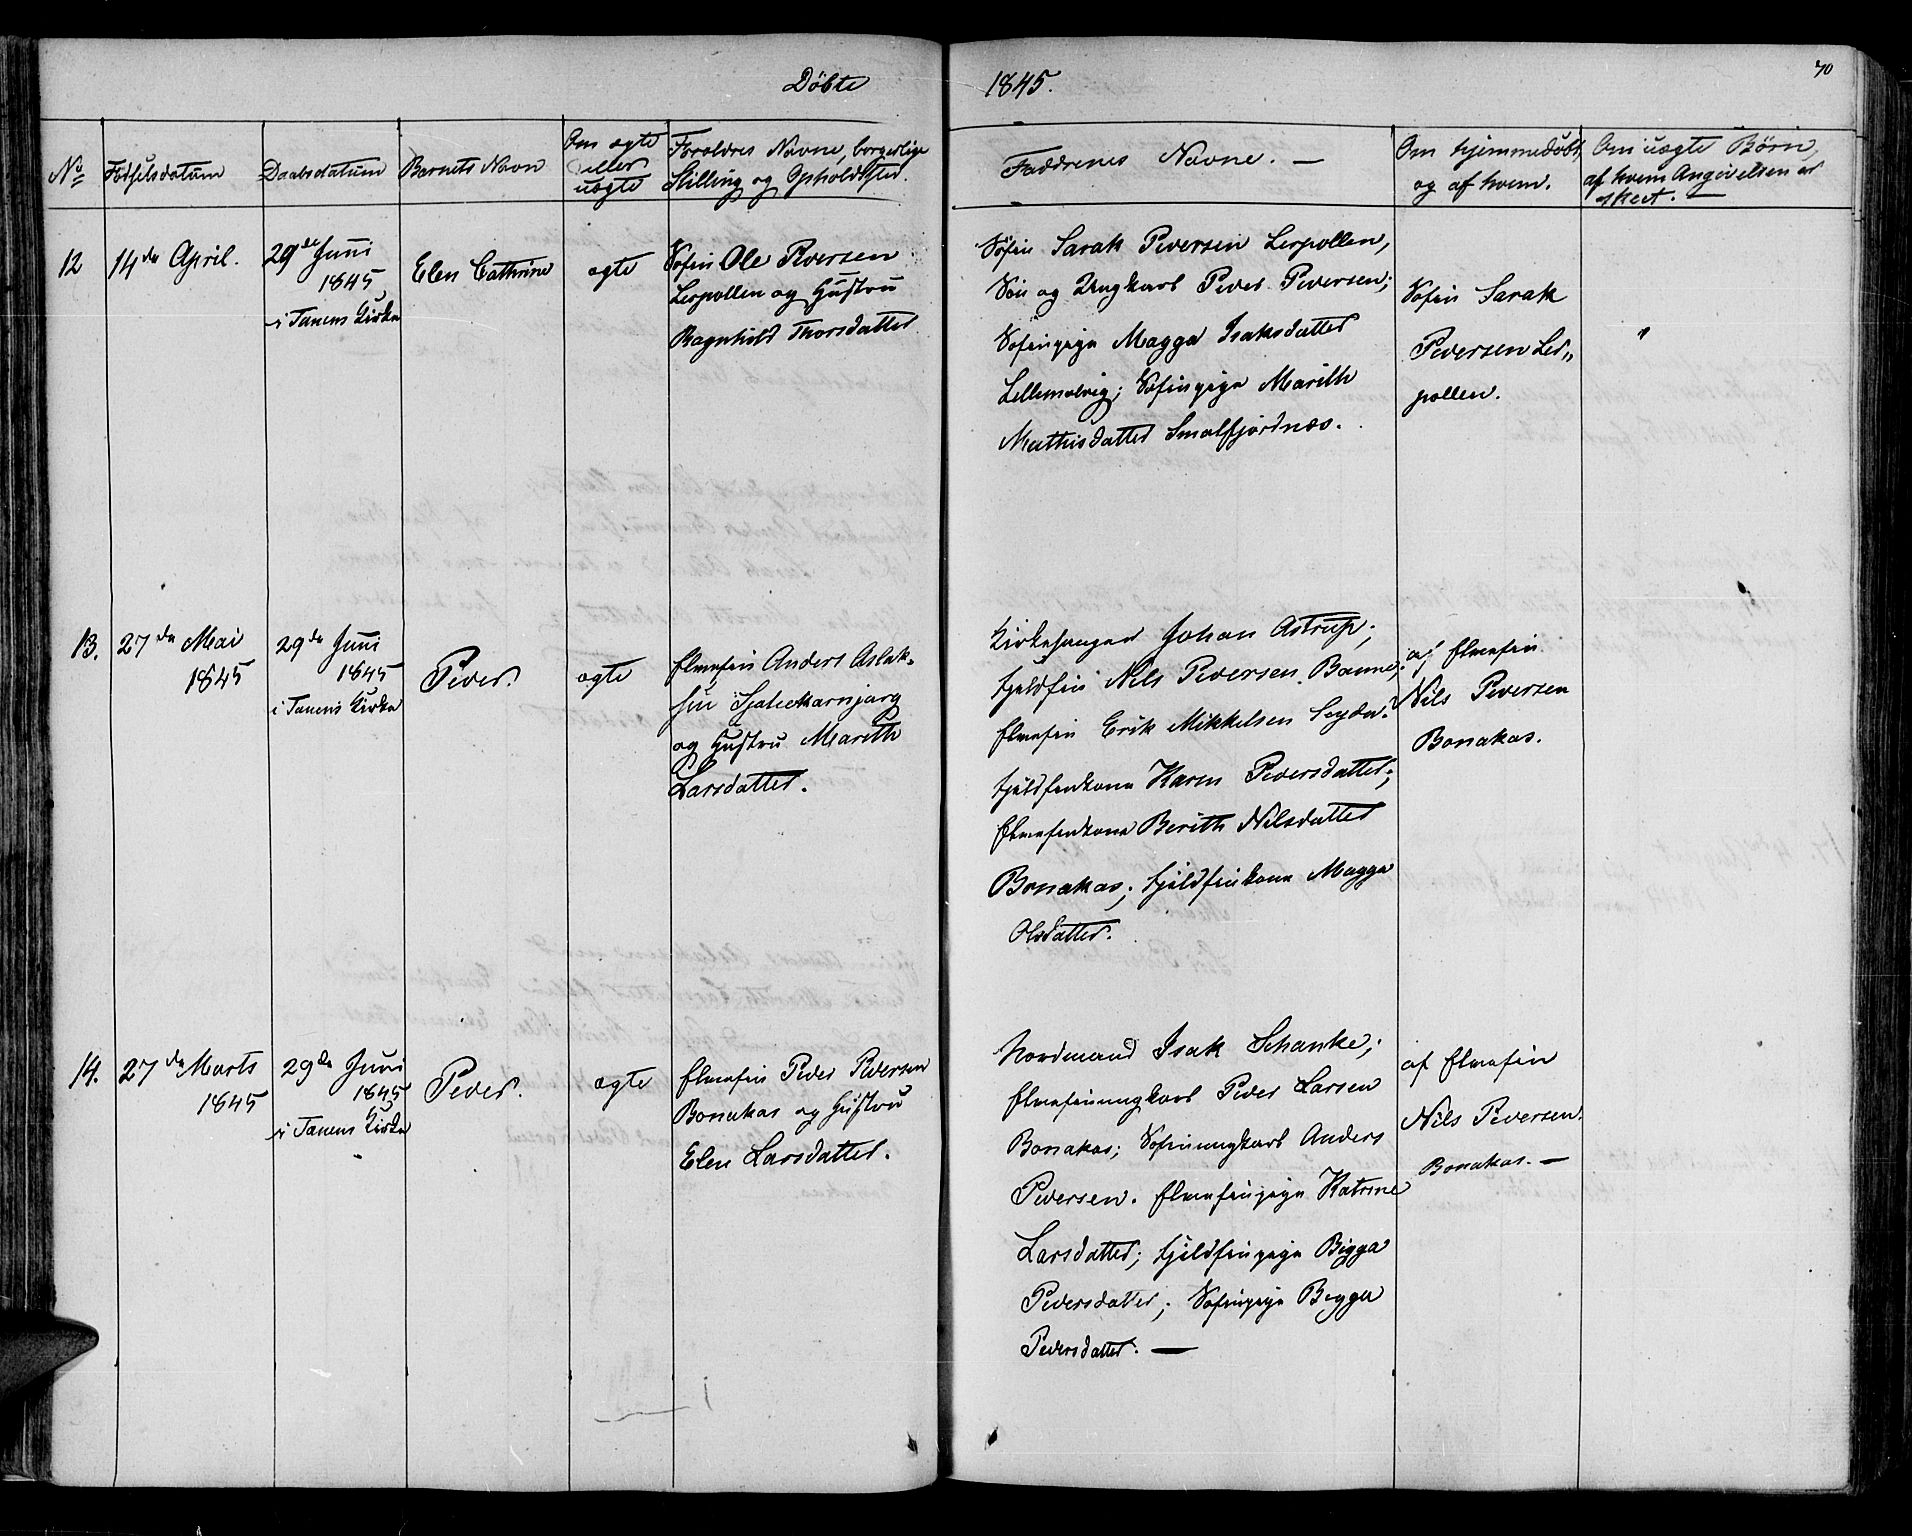 Døbte
1845.
70
No
Fødselsdatum
Daabsdatum
Barnets Navn
Om ægte
eller
uægte
Forældres Navne, borgerlige
Stilling og Opholdsted.
Faddrenes Navne. —
Om hjemmedøbt,
og af hvem.
Om uægte Børn,
af hvem Angivelsen er
skeet. —
12
14de April.
29de Juni
1845
i Tanens Kirke
Elen Cathrine
ægte
Søfin Ole Pedersen
Lerpollen og Hustru
Ragnhild Thorsdatter
Søfin Sarak Pedersen Lerpollen,
Søn og Ungkarl Peder Pedersen;
Søfinpige Magga Isaksdatter
Lillemolvig; Søfinpige Marith
Mathisdatter Smalfjordnæs.
Søfin Sarak
Pedersen Ler„
pollen.
"
13.
27de Mai
1845
29de Juni
1845
i Tanens Kirke
Peder.
ægte
Elvefin Anders Aslak-
sen
og Hustru Marith
Larsdatter.
Kirkesanger Johan Astrup;
Fjeldfin Nils Pedersen Banne;
Elvefin Erik Mikkelsen
Fjeldfinkone Karen Pedersdatter;
Elvefinkone Berith Nilsdatter
Bonakas; Fjeldfinkone Magga
Olsdatter.
af Elvefin
Nils Pedersen
Bonakas.
14.
27de Marts
1845
29de Juni
1845
i Tanens Kirke
Peder.
ægte
Elvefin Peder Pedersen
Bonakas og Hustru
Elen Larsdatter.
Nordmand Isak Schanke;
Elvefinungkarl Peder Larsen
Bonakas; Søfinungkarl Anders
Pedersen. Elvefinpige Katrine
Larsdatter; Fjeldfinpige Bigga
Pedersdatter; Søfinpige Bigga
Pedersdatter. —
af Elvefin
Nils Pedersen
Bonakas. —